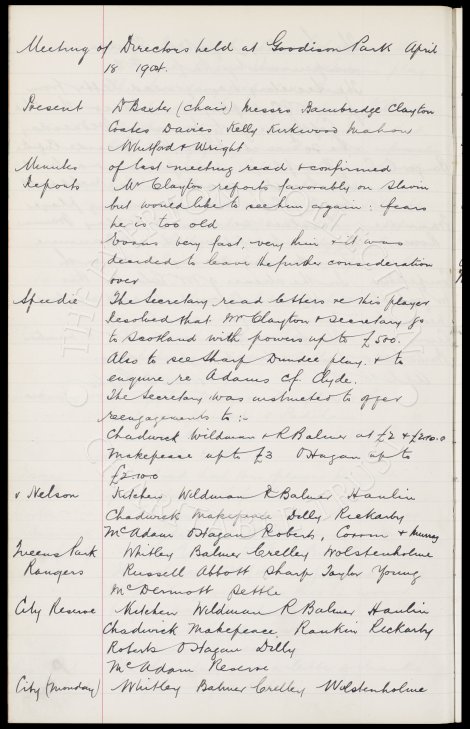 Meeting of Directors held at Goodison Park April
18 1904.
Present Dr Baxter (chair) Messrs Bainbridge Clayton
Coates Davies Kelly Kirkwood Mahon
Whitford & Wright
Minutes of last meeting read & confirmed
Reports Mr Clayton reports favorably on Slavin
but would like to see him again: fears
he is too old
very fast, very thin & it was
decided to leave the further consideration
over
Speedie The Secretary read letters re this player
Resolved that Mr Clayton & Secretary go
to Scotland with powers up to £500.
Also to see Sharp Dundee play. & to
enquire re Adams cf. Clyde.
The Secretary was instructed to offer
reengagements to :-
Chadwick Wildman & R Balmer at £2 & £2.10.0
Makepeace up to £3 O'Hagan up to
£2.10.0
v Nelson Kitchen Wildman R Balmer Hanlin
Chadwick Makepeace Dilly Rickarby
McAdam O'Hagan Roberts, & Murray
Queens Park Whitley Balmer Crelley Wolstenholme
Rangers Russell Abbott Sharp Taylor Young
McDermott Settle
City Reserve Kitchen Wildman R Balmer Hanlin
Chadwick Makepeace, Rankin Rickarby
Roberts O'Hagan Dilly
McAdam Reserve
City (Monday) Whitley Balmer Crelley Wolstenholme